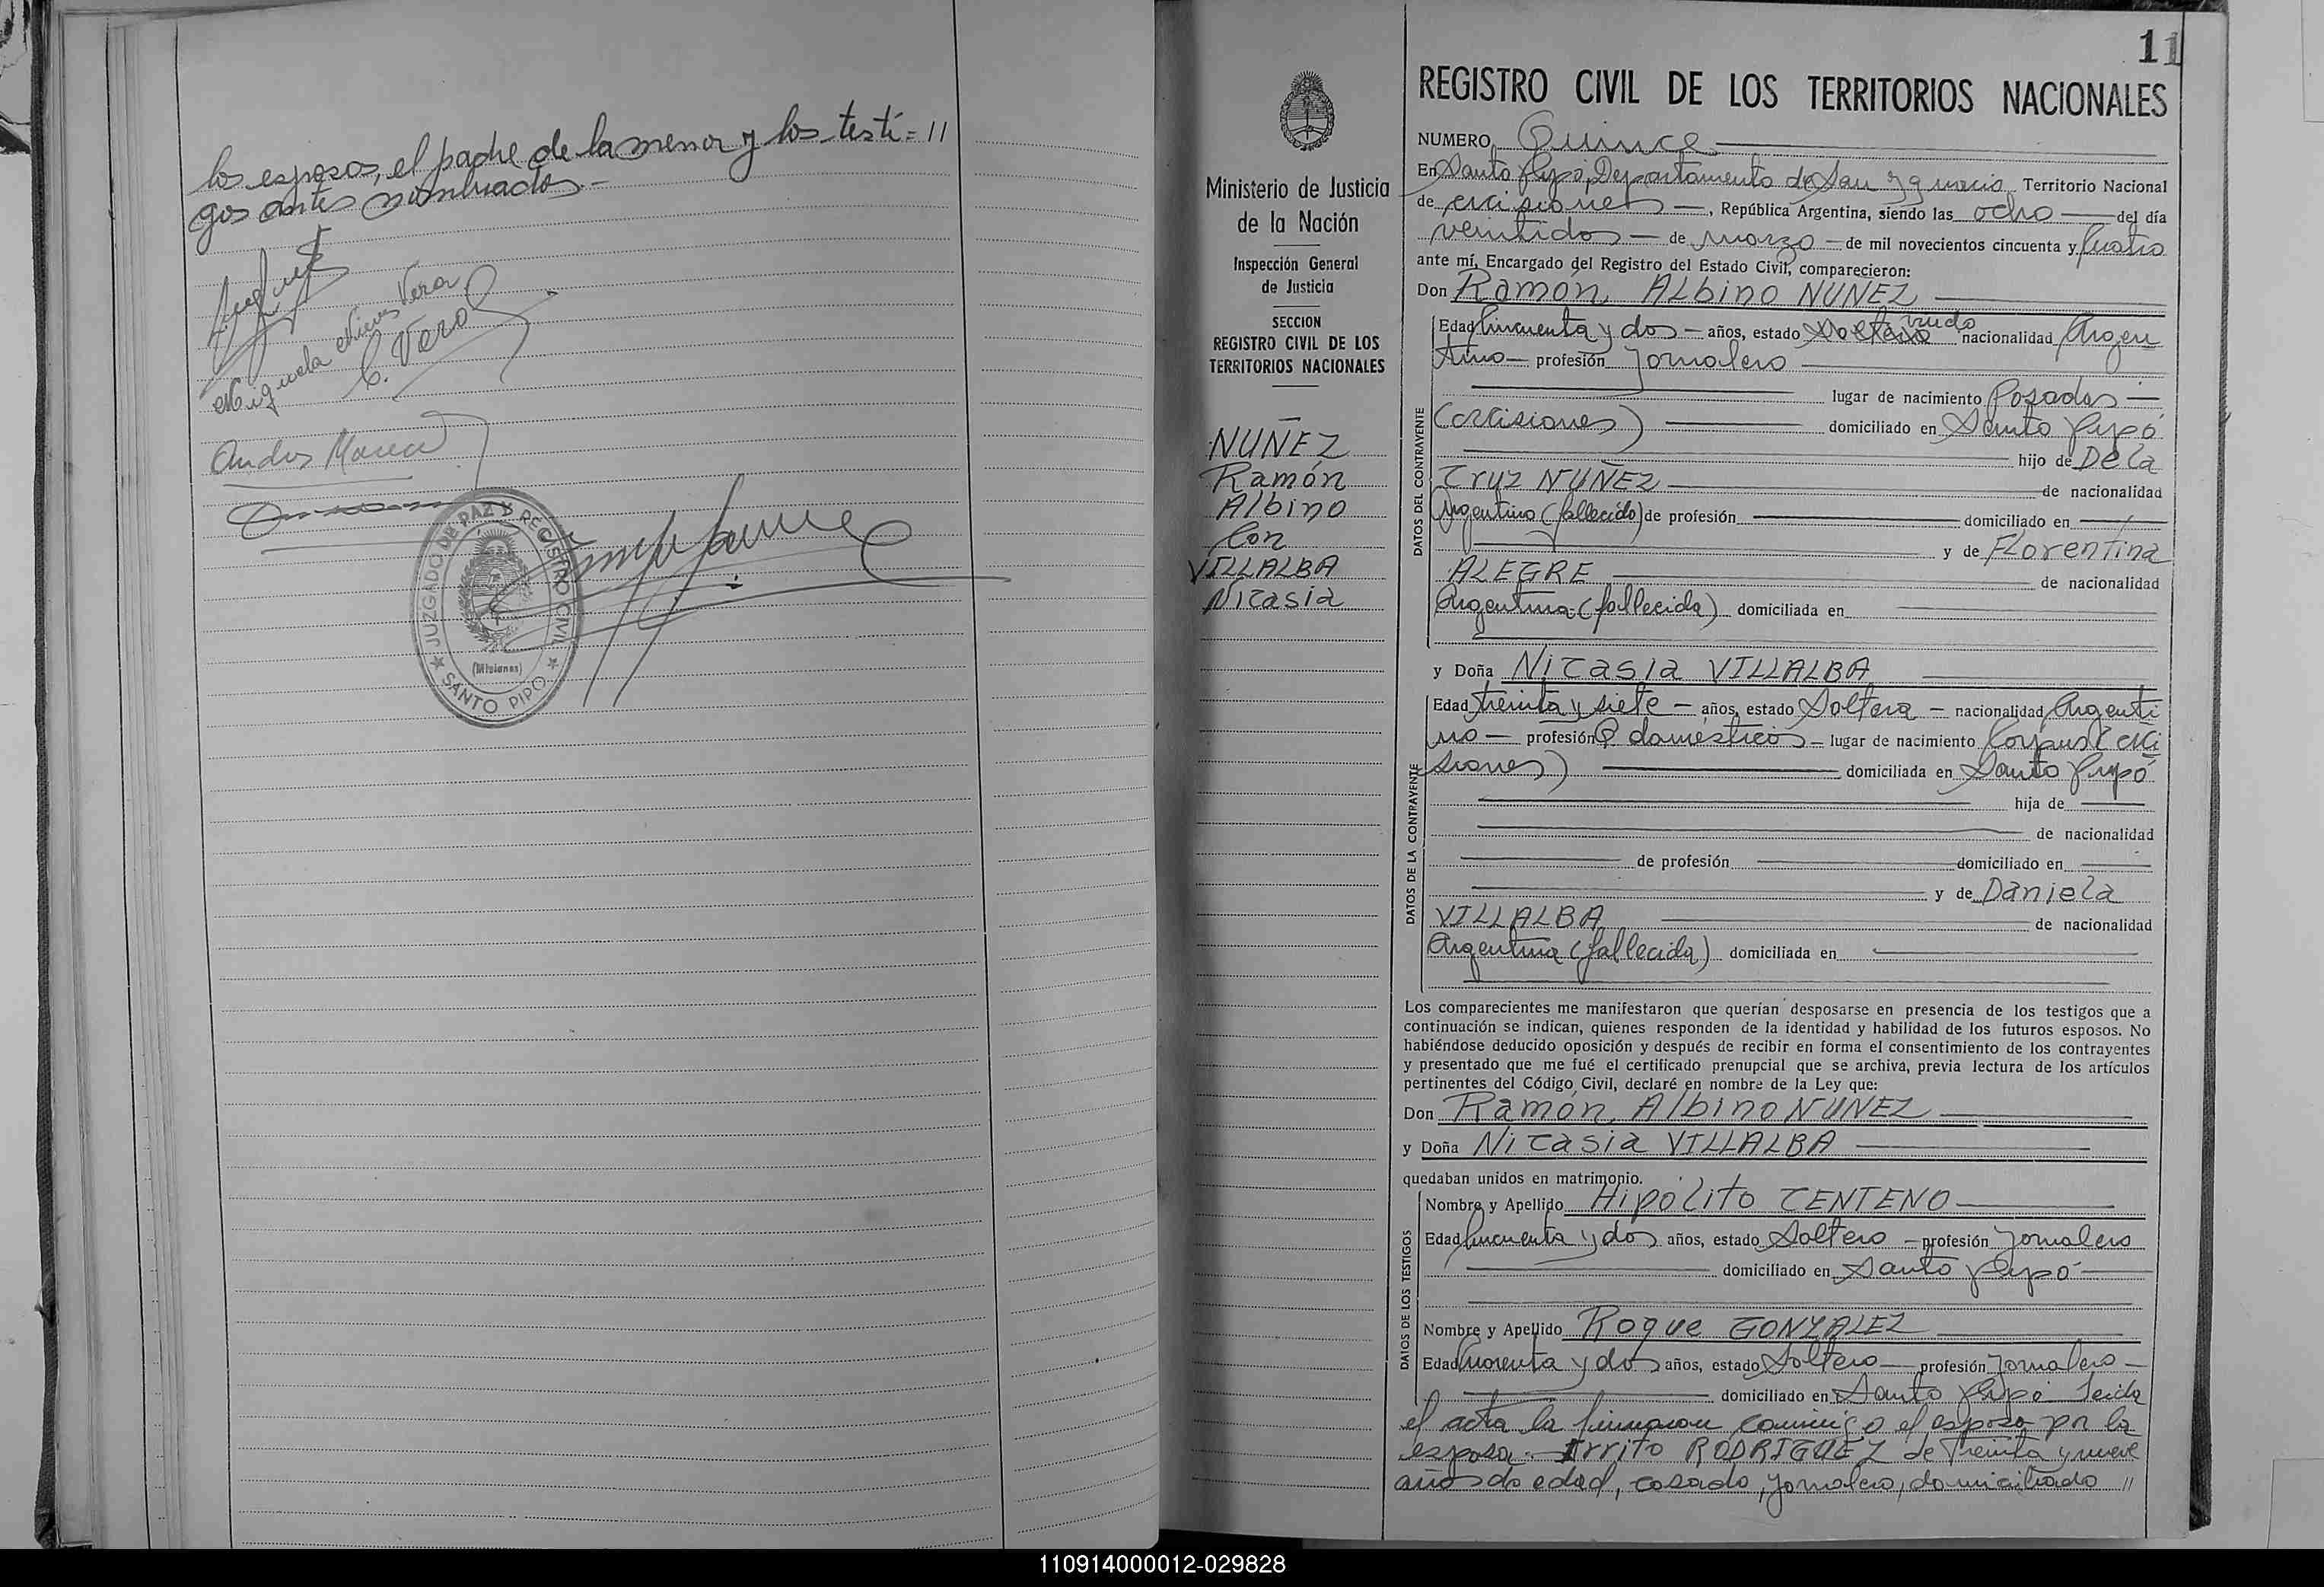 los esposos, el padre de la menor y los testi=//
gos antes nombrados.-
Miguela Nieves Vera
C. Vera
JUZGADO DE PAZ Y REGISTRO CIVIL
(Misiones)
★ SANTO PIPÓ ★
11
Ministerio de Justicia
de la Nación
Inspección General
de Justicia
SECCION
REGISTRO CIVIL DE LOS
TERRITORIOS NACIONALES
NUÑEZ
Ramón
Albino
Con
VILLALBA
Nicasia
REGISTRO CIVIL DE LOS TERRITORIOS NACIONALES
NUMERO Quince
En Santo Pipó, Departamento de San Ignacio Territorio Nacional
de Misiones —, República Argentina, siendo las ocho — del día
veintidos — de marzo — de mil novecientos cincuenta y cuatro
ante mí, Encargado del Registro del Estado Civil, comparecieron:
Don Ramón, ALbino NUÑEZ
DATOS DEL CONTRAYENTE
Edad cincuenta y dos — años, estado viudo nacionalidad Argen
tino — profesión Jornalero
lugar de nacimiento Posadas —
(Misiones) domiciliado en Santo Pipó
hijo de De la
Cruz NUÑEZ de nacionalidad
Argentino (fallecido) de profesión domiciliado en
y de FLorentina
ALEGRE de nacionalidad
Argentina (fallecida) domiciliada en
y Doña Nicasia VILLALBA
DATOS DE LA CONTRAYENTE
Edad treinta y siete — años, estado Soltera — nacionalidad Argenti
no — profesión Q. domésticos — lugar de nacimiento Corpus (Mi
siones) domiciliada en Santo Pipó
hija de
de nacionalidad
de profesión domiciliado en
y de Daniela
VILLALBA de nacionalidad
Argentina (fallecida) domiciliada en
Los comparecientes me manifestaron que querían desposarse en presencia de los testigos que a
continuación se indican, quienes responden de la identidad y habilidad de los futuros esposos. No
habiéndose deducido oposición y después de recibir en forma el consentimiento de los contrayentes
y presentado que me fué el certificado prenupcial que se archiva, previa lectura de los artículos
pertinentes del Código Civil, declaré en nombre de la Ley que:
Don Ramón, Albino NUÑEZ
y Doña Nicasia VILLALBA
quedaban unidos en matrimonio.
DATOS DE LOS TESTIGOS
Nombre y Apellido HipóLito CENTENO
Edad cincuenta y dos años, estado Soltero — profesión Jornalero
domiciliado en Santo Pipó
Nombre y Apellido Roque GONZALEZ
Edad cuarenta y dos años, estado Soltero — profesión Jornalero —
domiciliado en Santo Pipó Leida
el acta la firmaron conmigo el esposo por la
esposa. Irrito RODRIGUEZ de treinta y nueve
años de edad, casado, jornalero, domiciliado //
110914000012-029828